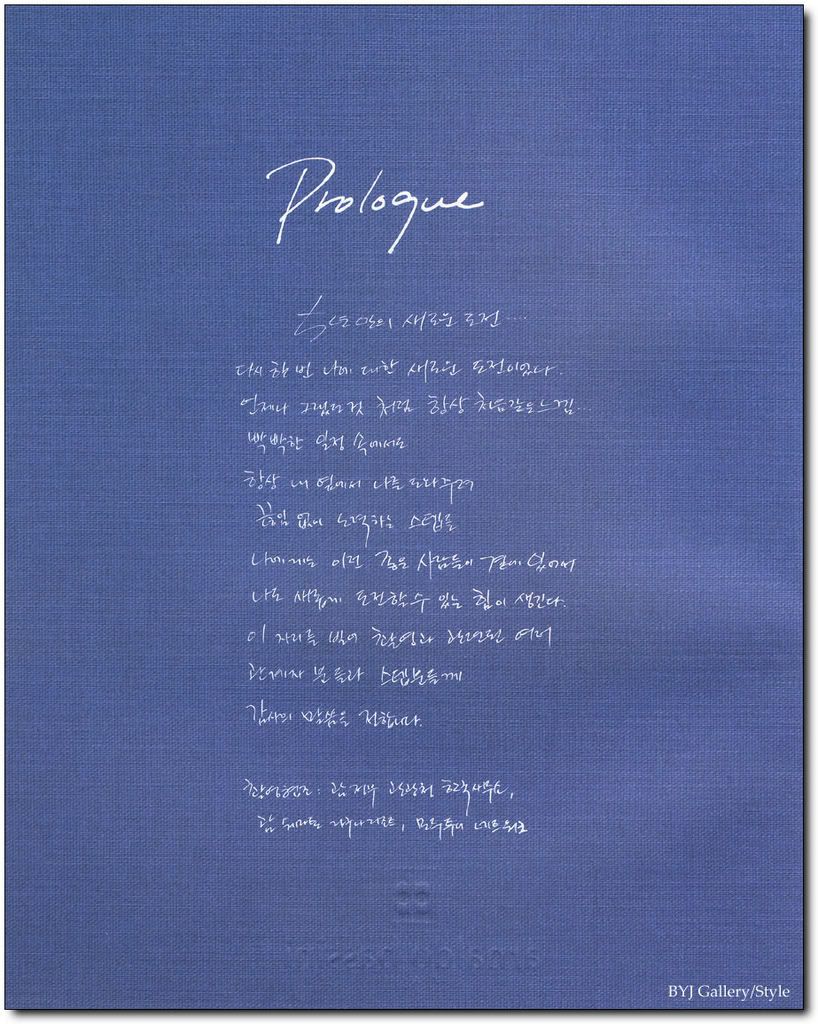 Prologue
만의 새로운 도전....
다시 한 번 나에 대한 새로운 도전이었다.
언제나 그랬던것 처럼 항상 처음같은 느낌...
빡빡한 일정 속에서도
항상 내 옆에서 나를 도와주려
끊임 없이 노력하는 스텝들
나에게는 이런 좋은 사람들이 곁에 있어서
나도 새롭게 도전할 수 있는 힘이 생긴다.
이 자리를 빌어 촬영과 관련된 여러
관계자 분들과 스텝분들께
감사의 말씀을 전합니다.
촬영협조: 괌 정부 관광청 한국사무소,
괌
BYJ Gallery/Style